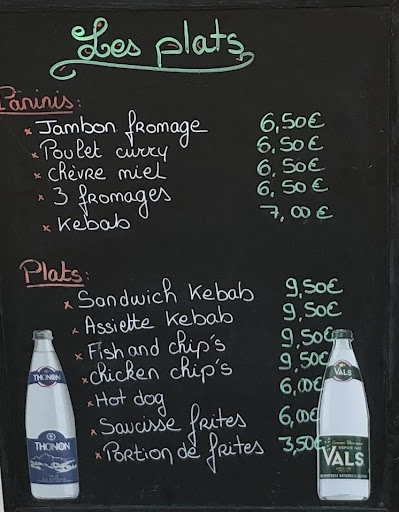 Les plats
Paninis:
x Jambon fromage 6,50€
x Poulet curry 6,50€
x chèvre miel 6,50€
x 3 fromages 6,50€
x Kebab 7,00€
Plats:
x Sandwich Kebab 9,50€
x Assiette Kebab 9,50€
x Fish and chip's 9,50€
x chicken chip's 9,50€
x Hot dog 6,00€
x Saucisse frites 6,00€
x Portion de frites 3,50€
THONON
THONON
VALS
VALS